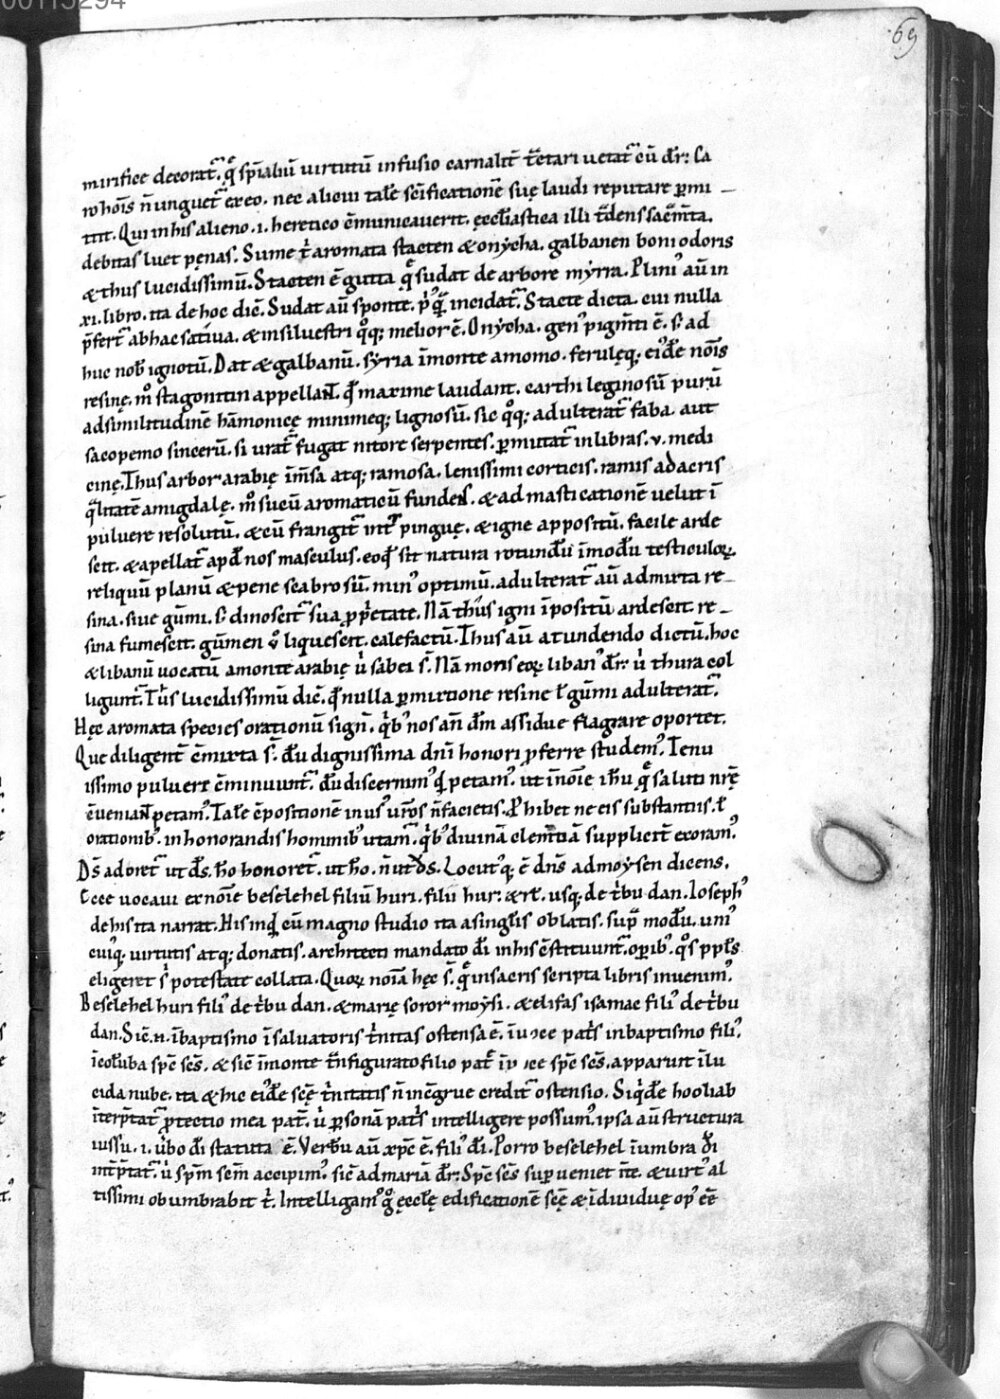 00115294
69
mirifice decorat᷑. q̄ sp̄ialiū uirtutū infusio carnalit᷑ t᷑ctari uetat᷑ cū dr̄: Ca
ro hoīs ñ unguet᷑ ex eo. nec alicui tal̄e sc̄ificationē suę laudi reputare ꝑmi
tit. Qui in his alieno .i. heretico c̄municauerit. ęccl̄iastica illi t᷑dens sac̄m̄ta.
debitas luet pęnas. Sume t̄ aromata stacten & onẏcha. galbanen boni odoris
& thus lucidissimū. Stacten ē gutta q̄ sudat de arbore mẏrra. Pliniꝰ aū in
xi. libro. ita de hoc dic̄. Sudat aū sponte. pꝰq̄ incidat᷑. Stacte dicta. cui nulla
p̄fert᷑ ab hac satiua. & in siluestri qͦq; melior ē. Onẏcha. genꝰ pigm̄ti ē. s; ad
huc nob̄ ignotū. Dat & galbanū. sẏria ī monte amomo. ferulęq; eiꝰdē noīs
resinę. mͦ stagonitin appellant. qd̄ maxime laudant. carthi leginosū purū
ad similitudinē hāmonicę minimeq; lignosū. sic qͦq; adulterat᷑ faba. aut
sacopemo sincerū. si urat᷑ fugat nitore serpentes. ꝑmutat᷑ in libras .v. medi
cinę. Thus arbor arabię īm̄sa atq; ramosa. lenissimi corticis. ramis ad acris
q̄litatē amigdalę. mͦ sucū aromaticū fundens. & ad masticationē uelut ī
puluere resolutū. & cū frangit᷑ int᷑ pinguę. & igne appositū. facile arde
scit. & apellat᷑ apd̄ nos masculus. eo qd̄ sit natura rotundū ī modū testiculoꝝ.
reliquū planū & pene scabrosū. minꝰ optimū. adulterat᷑ aū admixta re
sina. siue gūmi. s; dinoscit᷑ sua p̄p̄etate. Nā thus igni īpositū ardescit. re
sina fumescit. gūmen v̊ liquescit. calefactū. Thus aū a tundendo dictū. hoc
& libanū uocatū a monte arabię u̇ sabei s̄. Nā montis eoꝝ libanꝰ dr̄: u̇ thura col
ligunt᷑. Tus lucidissimū dic̄. qd̄ nulla ꝑmixtione resine ł gūmi adulterat᷑.
Hęc aromata species orationū sign̄. q̇bꝰ nos an̄ dm̄ assidue flagrare oportet.
Que diligent᷑ c̄mixta s̄. dū dignissima dn̄i honori p̄ferre studemꝰ. Tenu
issimo puluere c̄minuunt᷑. dū discernimꝰ qd̄ petamꝰ. ut ī noīe ih̄u q̄ saluti nr̄ę
c̄ueniant petamꝰ. Tal̄e c̄positionē in usꝰ ur̄os ñ facietis. P̄hibet ne eis substantiis. ł
orationibꝰ. in honorandis hominibꝰ utam᷑. q̇bꝰ diuinā clem̄tiā supplicit᷑ exoramꝰ.
Ds̄ adoret᷑ ut ds̄. ho honoret᷑. ut ho. ñ ut ds̄. Locutꝰq; ē dn̄s ad moẏsen dicens.
Ecce uocaui ex noīe beselehel filiū huri. filii hur: & rł. usq; de t̄bu dan. Ioseph
de his ita narrat. His inqd̄ cū magno studio ita a singl̄is oblatis. sup̄ modū. uniꝰ
cuiꝰq; uirtutis atq; donatis. architecti mandato di̅ in his c̄stituunt᷑. opibꝰ. qͦs ppl̄s
eligeret s; potestate collata. Quoꝝ noīa hęc s̄. q̄ in sacris scripta libris inuenimꝰ.
Beselehel huri filiꝰ de t̄bu dan. & marię soror moẏsi. & elifas isamac filiꝰ de t̄bu
dan. Sic̄ n̄ ī baptismo ī saluatoris t̄nitas ostensa ē. ī uoce pat̄s in baptismo filiꝰ.
ī colūba sp̄c sc̄s. & sic̄ ī monte t̄nfigurato filio pat᷑ ī uoce sp̄c sc̄s. apparuit ī lu
cida nube. ita & hic eiꝰdē scę̄ t̄nitatis ñ inc̄grue credit᷑ ostensio. Siq̇dē hooliab
īt᷑p̄tat᷑ p̄tectio mea pat᷑. u̇ ꝑsonā pat̄s intelligere possumꝰ. ipsa aū structura
iussu .i. u̇bo di̅ statuta ē. Verbū aū xp̄c ē. filiꝰ di̅. Porro beselehel ī umbra di̅
int᷑p̄tat᷑. u̇ sp̄m sc̄m accipimꝰ. sic̄ ad mariā dr̄: Sp̄c sc̄s supueniet ī te. & uirtꝰ al
tissimi obumbrabit t̄. Intelligamꝰ gͦ ęccl̄ę edificationē scę̄ & īdiuiduę opꝰ ēē